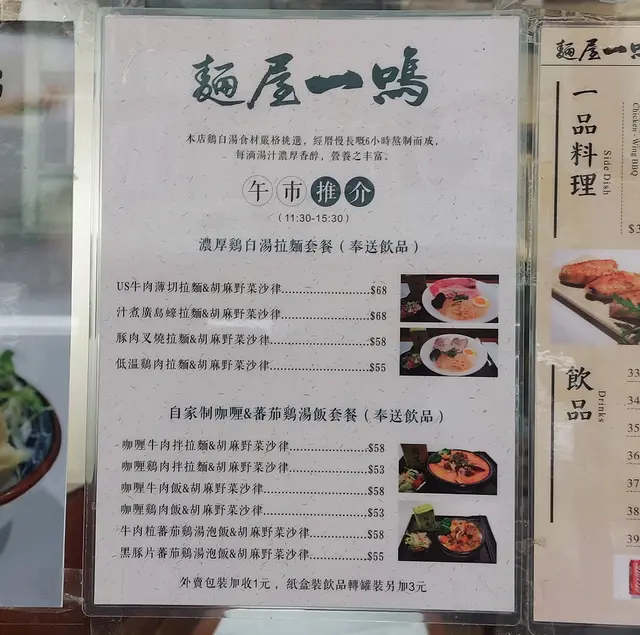 麵屋一鳴
本店鷄白湯食材嚴格挑選，經曆慢長嘅6小時熬制而成，
每滴湯汁濃厚香醇，營養之丰富。
午市推介
（11:30-15:30）
濃厚鷄白湯拉麵套餐（奉送飲品）
US牛肉薄切拉麵&胡麻野菜沙律........................$68
汁煮廣島蠔拉麵&胡麻野菜沙律........................$68
豚肉叉燒拉麵&胡麻野菜沙律............................$58
低温鷄肉拉麵&胡麻野菜沙律............................$55
自家制咖喱&蕃茄鷄湯飯套餐（奉送飲品）
咖喱牛肉拌拉麵&胡麻野菜沙律......................$58
咖喱鷄肉拌拉麵&胡麻野菜沙律......................$53
咖喱牛肉飯&胡麻野菜沙律............................$58
咖喱鷄肉飯&胡麻野菜沙律............................$53
牛肉粒蕃茄鷄湯泡飯&胡麻野菜沙律...............$58
黑豚片蕃茄鷄湯泡飯&胡麻野菜沙律...............$55
外賣包裝加收1元，紙盒裝飲品轉罐裝另加3元
麵屋一鳴
一品料理
Side Dish
Chicken-Wing BBQ
飲品
Drinks
33
34
35
36
37
38
39